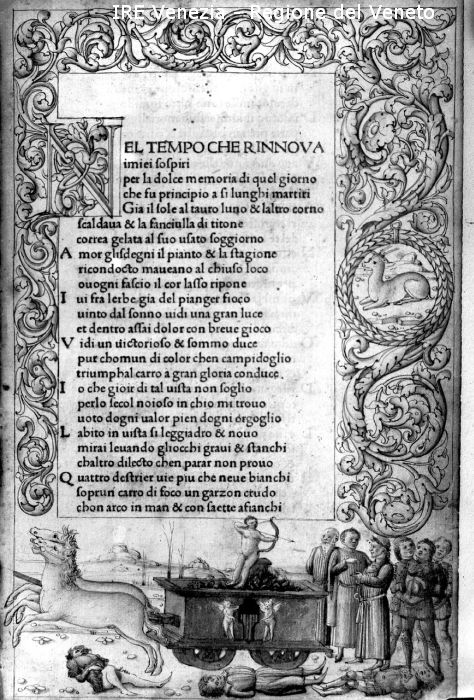 IRE Venezia - Regione del Veneto
NEL TEMPO CHE RINNOVA
imiei sospiri
per la dolce memoria di quel giorno
che fu principio a si lunghi martiri
Gia il sole al tauro luno & laltro corno
scaldaua & la fanciulla di titone
correa gelata al suo usato soggiorno
A mor glisdegni il pianto & la stagione
ricondocto maueano al chiuso loco
ouogni fascio il cor lasso ripone
I ui fra lerbe gia del pianger fioco
uinto dal sonno uidi una gran luce
et dentro assai dolor con breue gioco
V idi un uictorioso & sommo duce
pur chomun di color chen campidoglio
triumphal carro a gran gloria conduce.
I o che gioir di tal uista non soglio
perlo secol noioso in chio mi trouo
uoto dogni ualor pien dogni orgoglio
L abito in uista si leggiadro & nouo
mirai leuando gliocchi graui & stanchi
chaltro dilecto chen parar non prouo
Q uattro destrier uie piu che neue bianchi
sopruni carro di foco un garzon crudo
chon arco in man & con saette afianchi